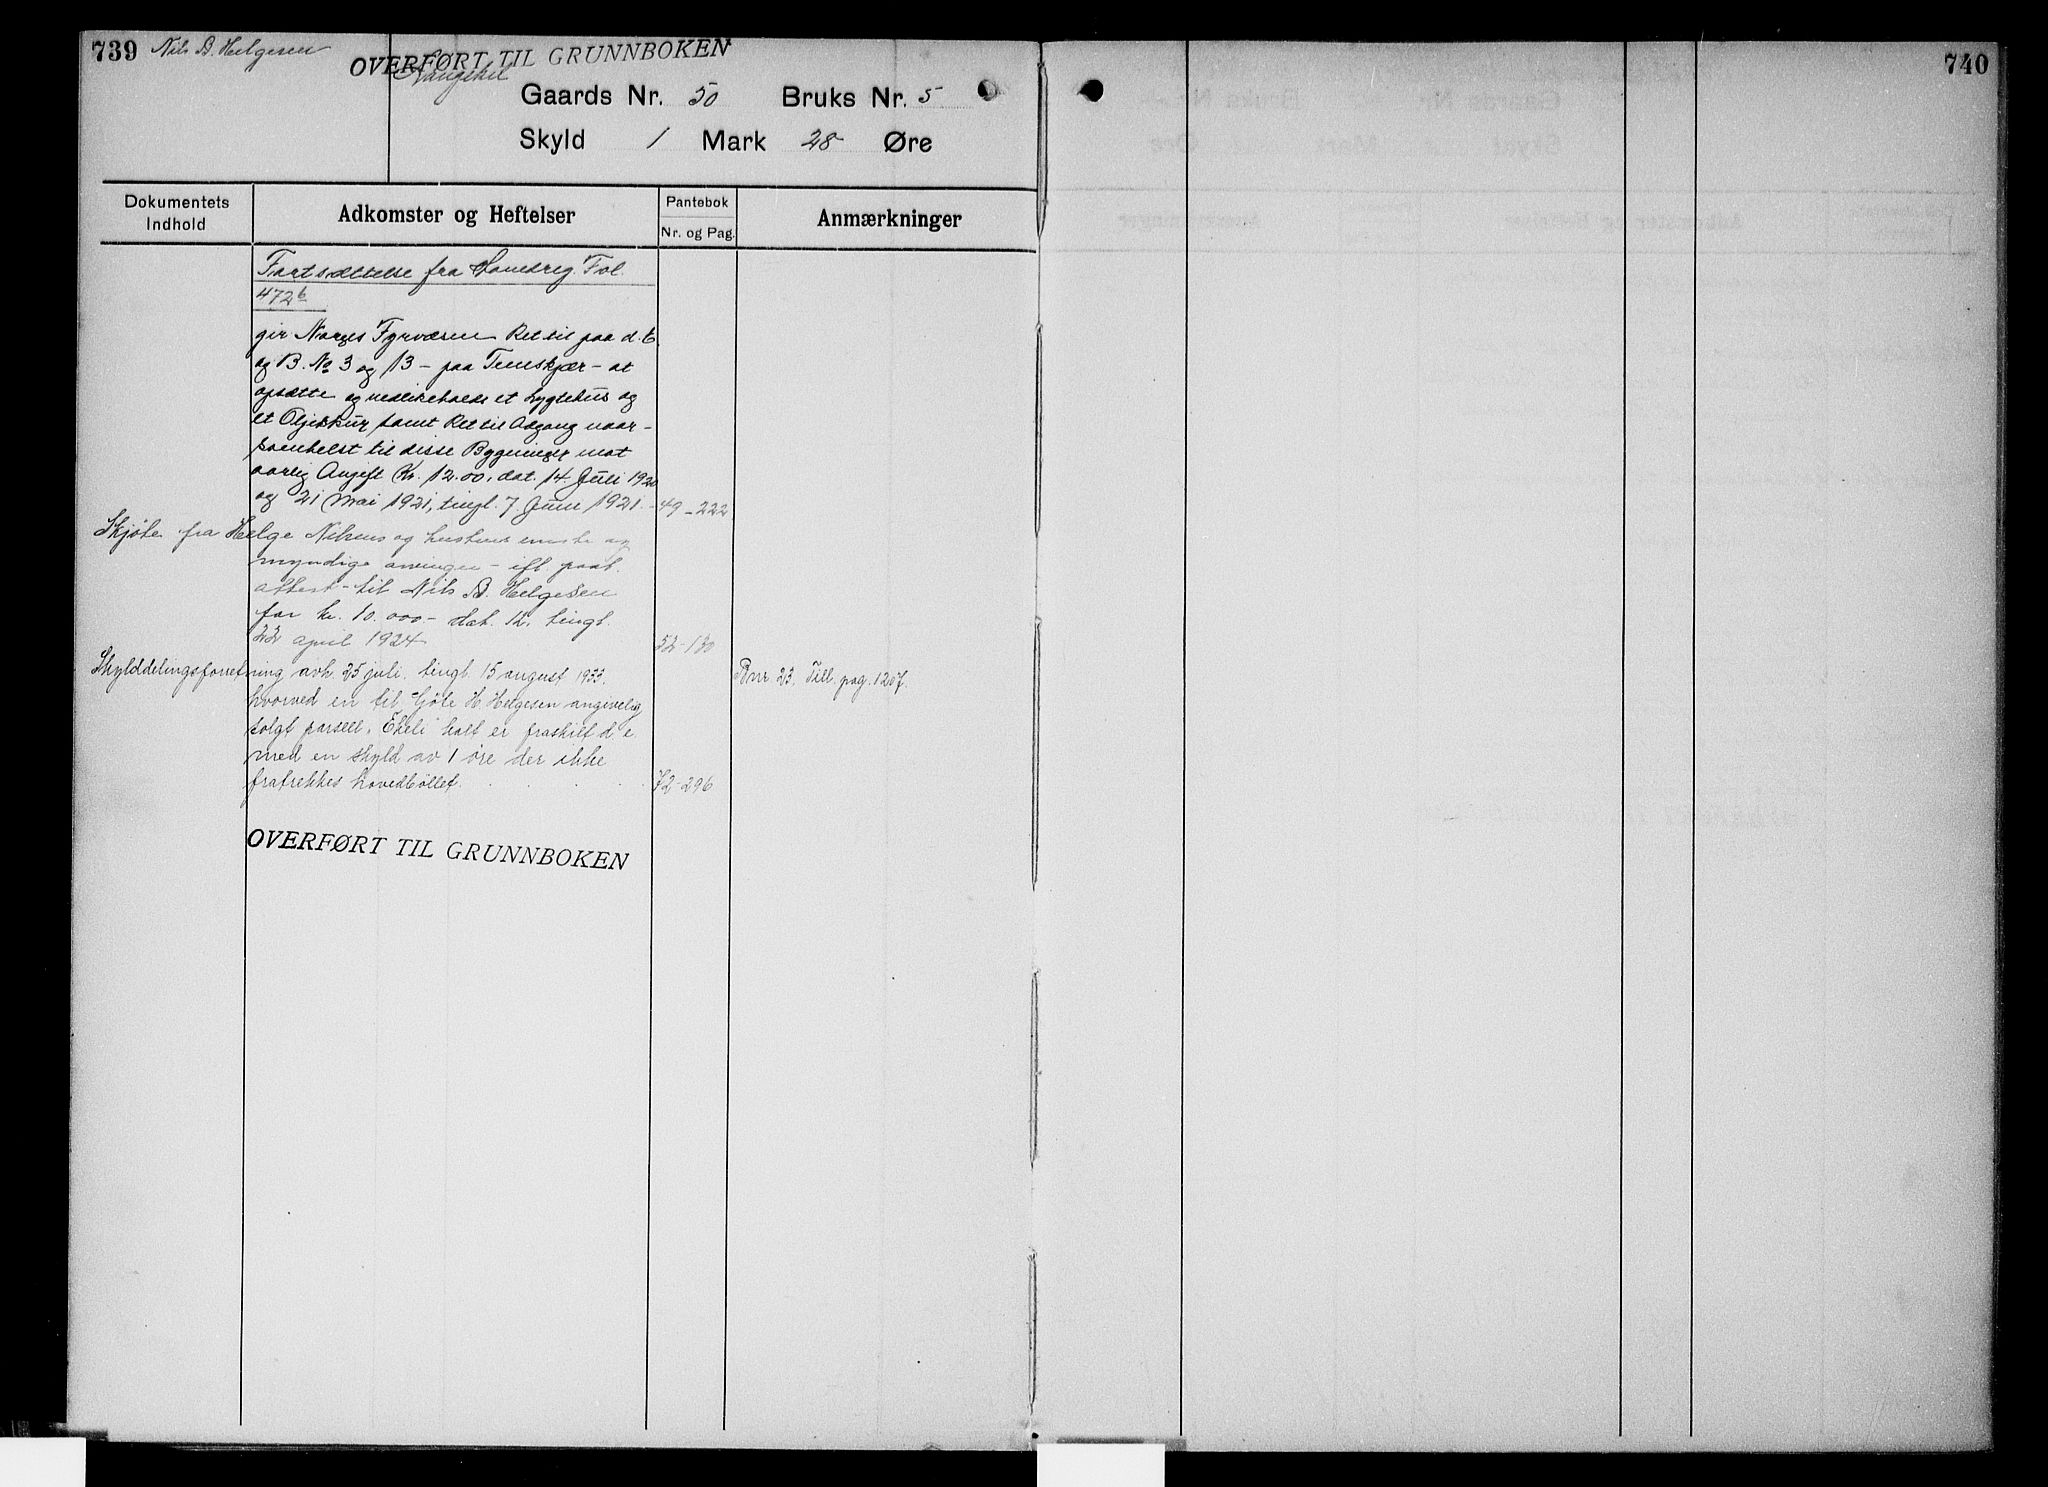 739 Nils B. Helgesen
OVERFØRT TIL GRUNNBOKEN
Gaards Nr. 50 Bruks Nr. 5
Skyld 1 Mark 28 Øre
Dokumentets Indhold
Adkomster og Heftelser
Pantebok
Nr. og Pag.
Anmærkninger
Fortsættelse fra Hovedreg. Fol.
472b
gir Norges Fyrvæsen Ret til paa d. b.
og B. No 3 og 13 - paa Temskjær - at
opsætte og vedlikeholde et Lygtehus og
et Oljeskur samt Ret til Adgang naar-
somhelst til disse Bygninger mot
aarlig Avgift Kr. 12.00, dat. 14 Juli 1920
og 21 Mai 1921, tingl. 7 Juni 1921. - 49-222
Skjøte fra Helge Nilsens og hustrus eneste og
myndige arvinger - ifl. paat.
attest - til Nils B. Helgesen
for kr. 10.000 - dat. 12, tingl.
22 april 1924 52-130
Skylddelingsforretning avh. 25 juli, tingl. 15 august 1933, Bnr. 23. Till. pag. 1207.
hvorved en til Gjøte H. Helgesen angivelig
solgt parsell, "Ekeli" kalt er fraskilt d. e.
med en skyld av 1 øre der ikke
fratrekkes hovedbøllet. 72-296
OVERFØRT TIL GRUNNBOKEN
740